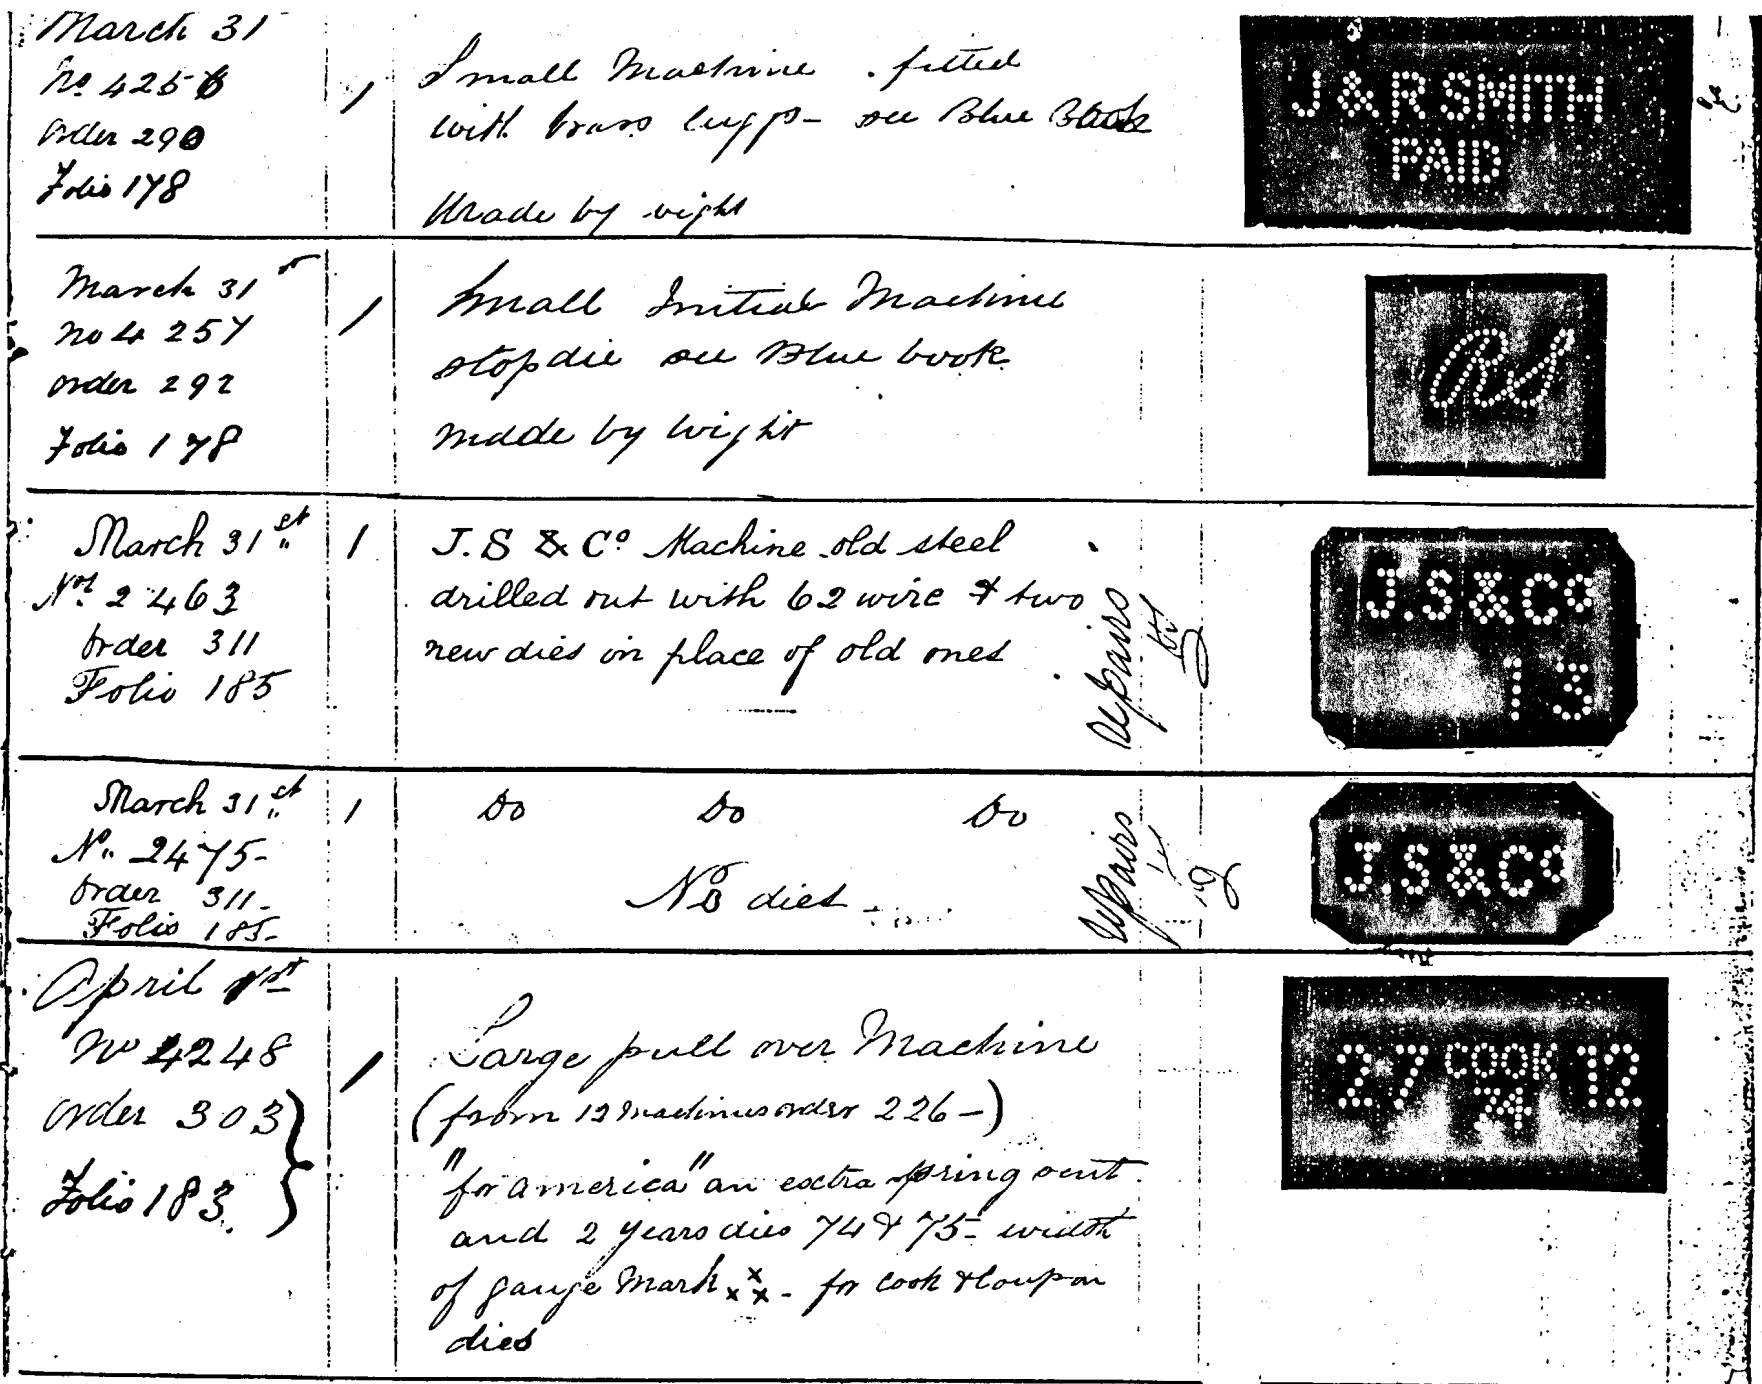 March 31
No 4256
Order 290
Folio 178
1
Small Machine . fitted
with brass luggs - see Blue Book
Made by wight
J&R SMITH
PAID
March 31st
no 4257
order 292
Folio 178
1
Small Initial Machine
stop die see Blue book
made by wight
RS
March 31st
No. 2463
Order 311
Folio 185
1
J. S & Co Machine old steel
drilled out with 62 wire & two
new dies in place of old ones
Repairs
J.S&Co
13
March 31st
No. 2475-
Order 311-
Folio 185-
1
Do Do Do
No dies
Repairs
J.S&Co
April 1st
No 4248
order 303
Folio 183.
1
Large pull over Machine
(from 12 Machines order 226-)
"for america" an extra spring sent
and 2 years dies 74 & 75- width
of gauge Mark xxx - for cook & Coupon
dies
27 COOK 12
74